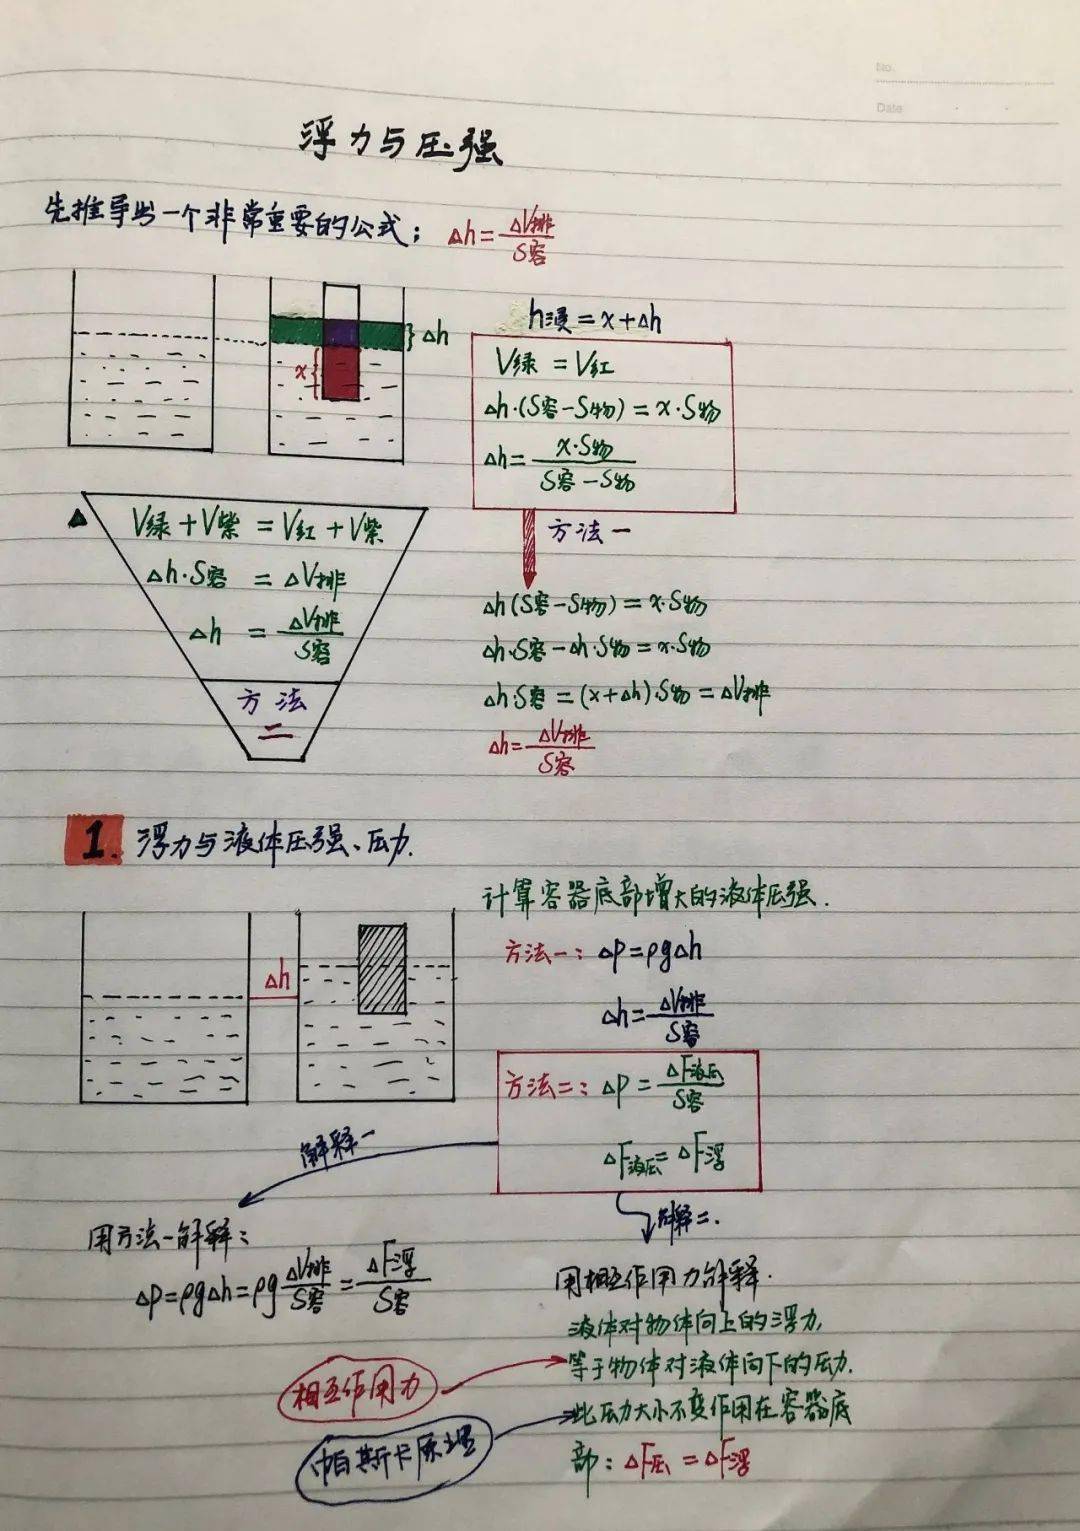 No.
Date
浮力与压强
先推导出一个非常重要的公式； Δh=ΔV排/S容
Δh
x
h浸=x+Δh
V绿=V红
Δh·(S容-S物)=x·S物
Δh=x·S物/S容-S物
方法一
Δh(S容-S物)=x·S物
Δh·S容-Δh·S物=x·S物
Δh·S容=(x+Δh)·S物=ΔV排
Δh=ΔV排/S容
V绿+V紫=V红+V紫
Δh·S容=ΔV排
Δh=ΔV排/S容
方法
二
1. 浮力与液体压强、压力.
Δh
计算容器底部增大的液体压强.
方法一：ΔP=ρgΔh
Δh=ΔV排/S容
方法二：ΔP=ΔF液压/S容
ΔF液压=ΔF浮
解释一
用方法一解释：
ΔP=ρgΔh=ρgΔV排/S容=ΔF浮/S容
解释二.
用相互作用力解释.
液体对物体向上的浮力,
等于物体对液体向下的压力.
此压力大小不变作用在容器底
部：ΔF压=ΔF浮
相互作用力
帕斯卡原理